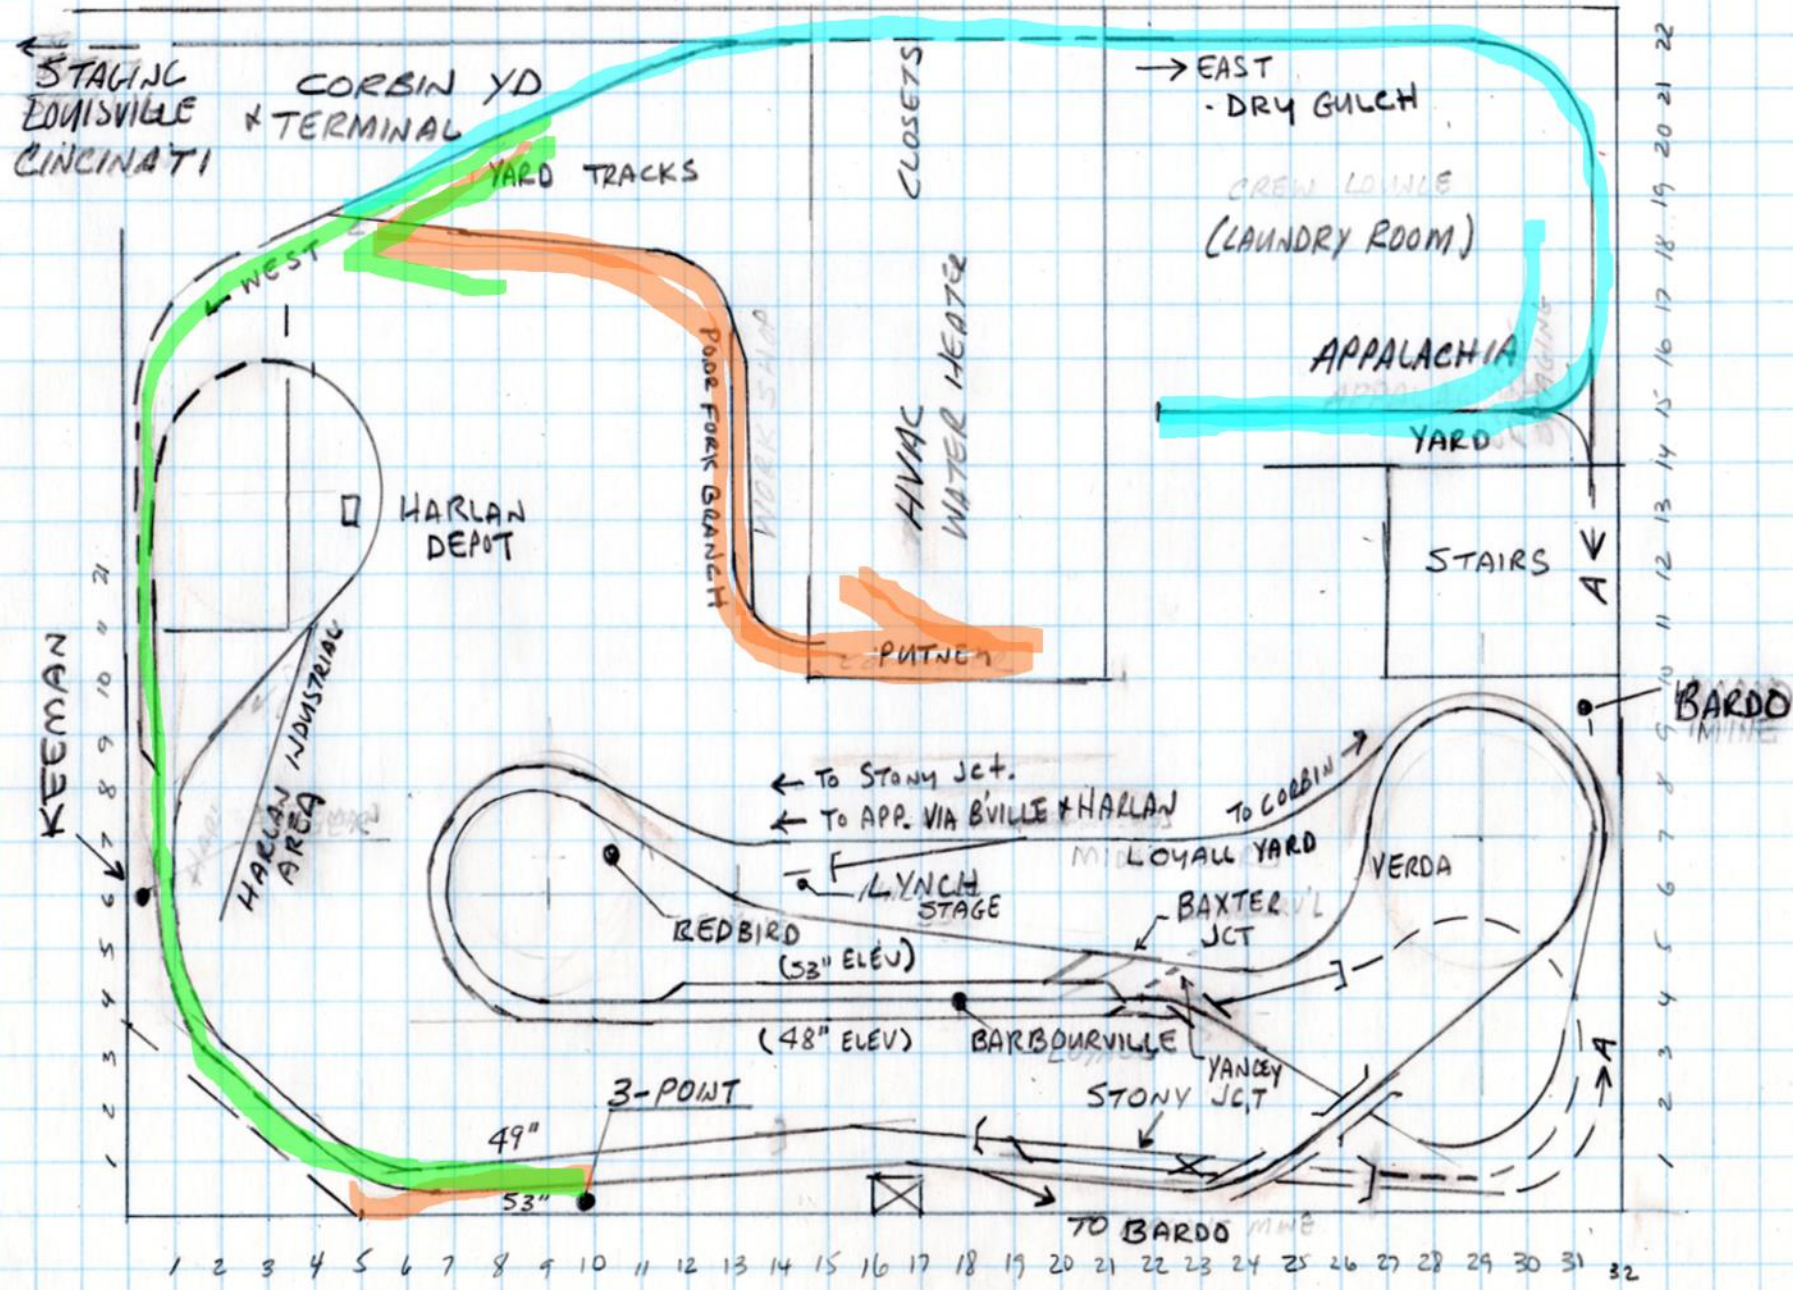 STAGING
LOUISVILLE
CINCINATI
CORBIN YD
& TERMINAL
YARD TRACKS
← WEST
CLOSETS
→ EAST
- DRY GULCH
CREW LOUNGE
(LAUNDRY ROOM)
APPALACHIA
STAGING
YARD
POOR FORK BRANCH
WORK SHOP
HVAC
WATER HEATER
HARLAN
DEPOT
STAIRS
A
PUTNEY
KEEMAN
HARLAN INDUSTRIAL
AREA
BARDO
MINE
← TO STONY JCT.
← TO APP. VIA B'VILLE & HARLAN
TO CORBIN
LOYALL YARD
VERDA
LYNCH
STAGE
BAXTER
JCT
REDBIRD
(53" ELEV)
(48" ELEV)
BARBOURVILLE
YANCEY
STONY JCT
3-POINT
49"
53"
→ A
TO BARDO MINE
22
21
20
19
18
17
16
15
14
13
12
11
10
9
8
7
6
5
4
3
2
1
21
11
10
9
8
7
6
5
4
3
2
1
1 2 3 4 5 6 7 8 9 10 11 12 13 14 15 16 17 18 19 20 21 22 23 24 25 26 27 28 29 30 31 32